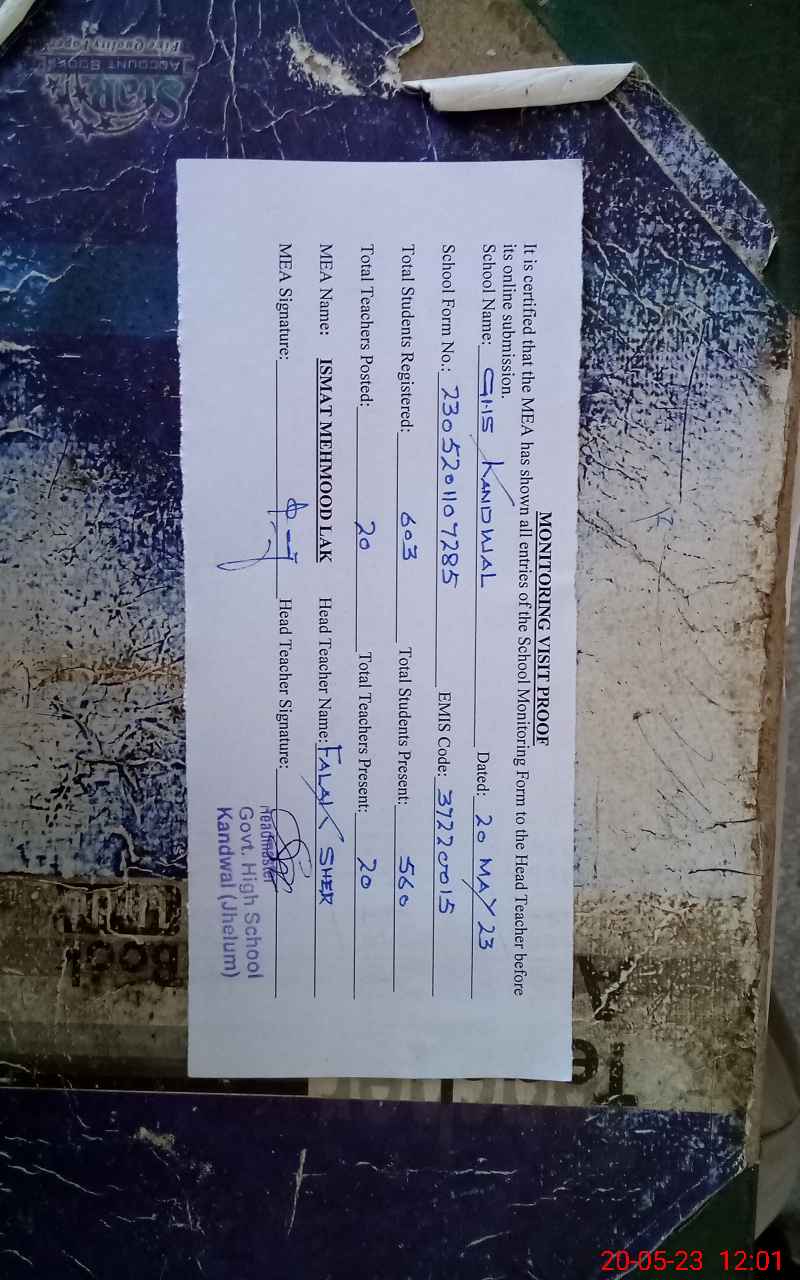 MONITORING VISIT PROOF
It is certified that the MEA has shown all entries of the School Monitoring Form to the Head Teacher before
its online submission.
School Name: GHS KANDWAL Dated: 20 MAY 23
School Form No.: 2305201107285 EMIS Code: 37220015
Total Students Registered: 603 Total Students Present: 560
Total Teachers Posted: 20 Total Teachers Present: 20
MEA Name: ISMAT MEHMOOD LAK Head Teacher Name: FALAK SHER
MEA Signature: Head Teacher Signature:
Headmaster
Govt. High School
Kandwal (Jhelum)
Star
ACCOUNT BOOK
Fine Quality Paper
Book
20-05-23 12:01